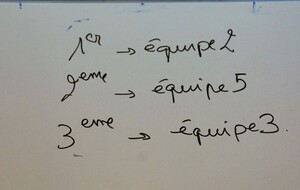 1er → équipe 2
2eme → équipe 5
3eme → équipe 3.